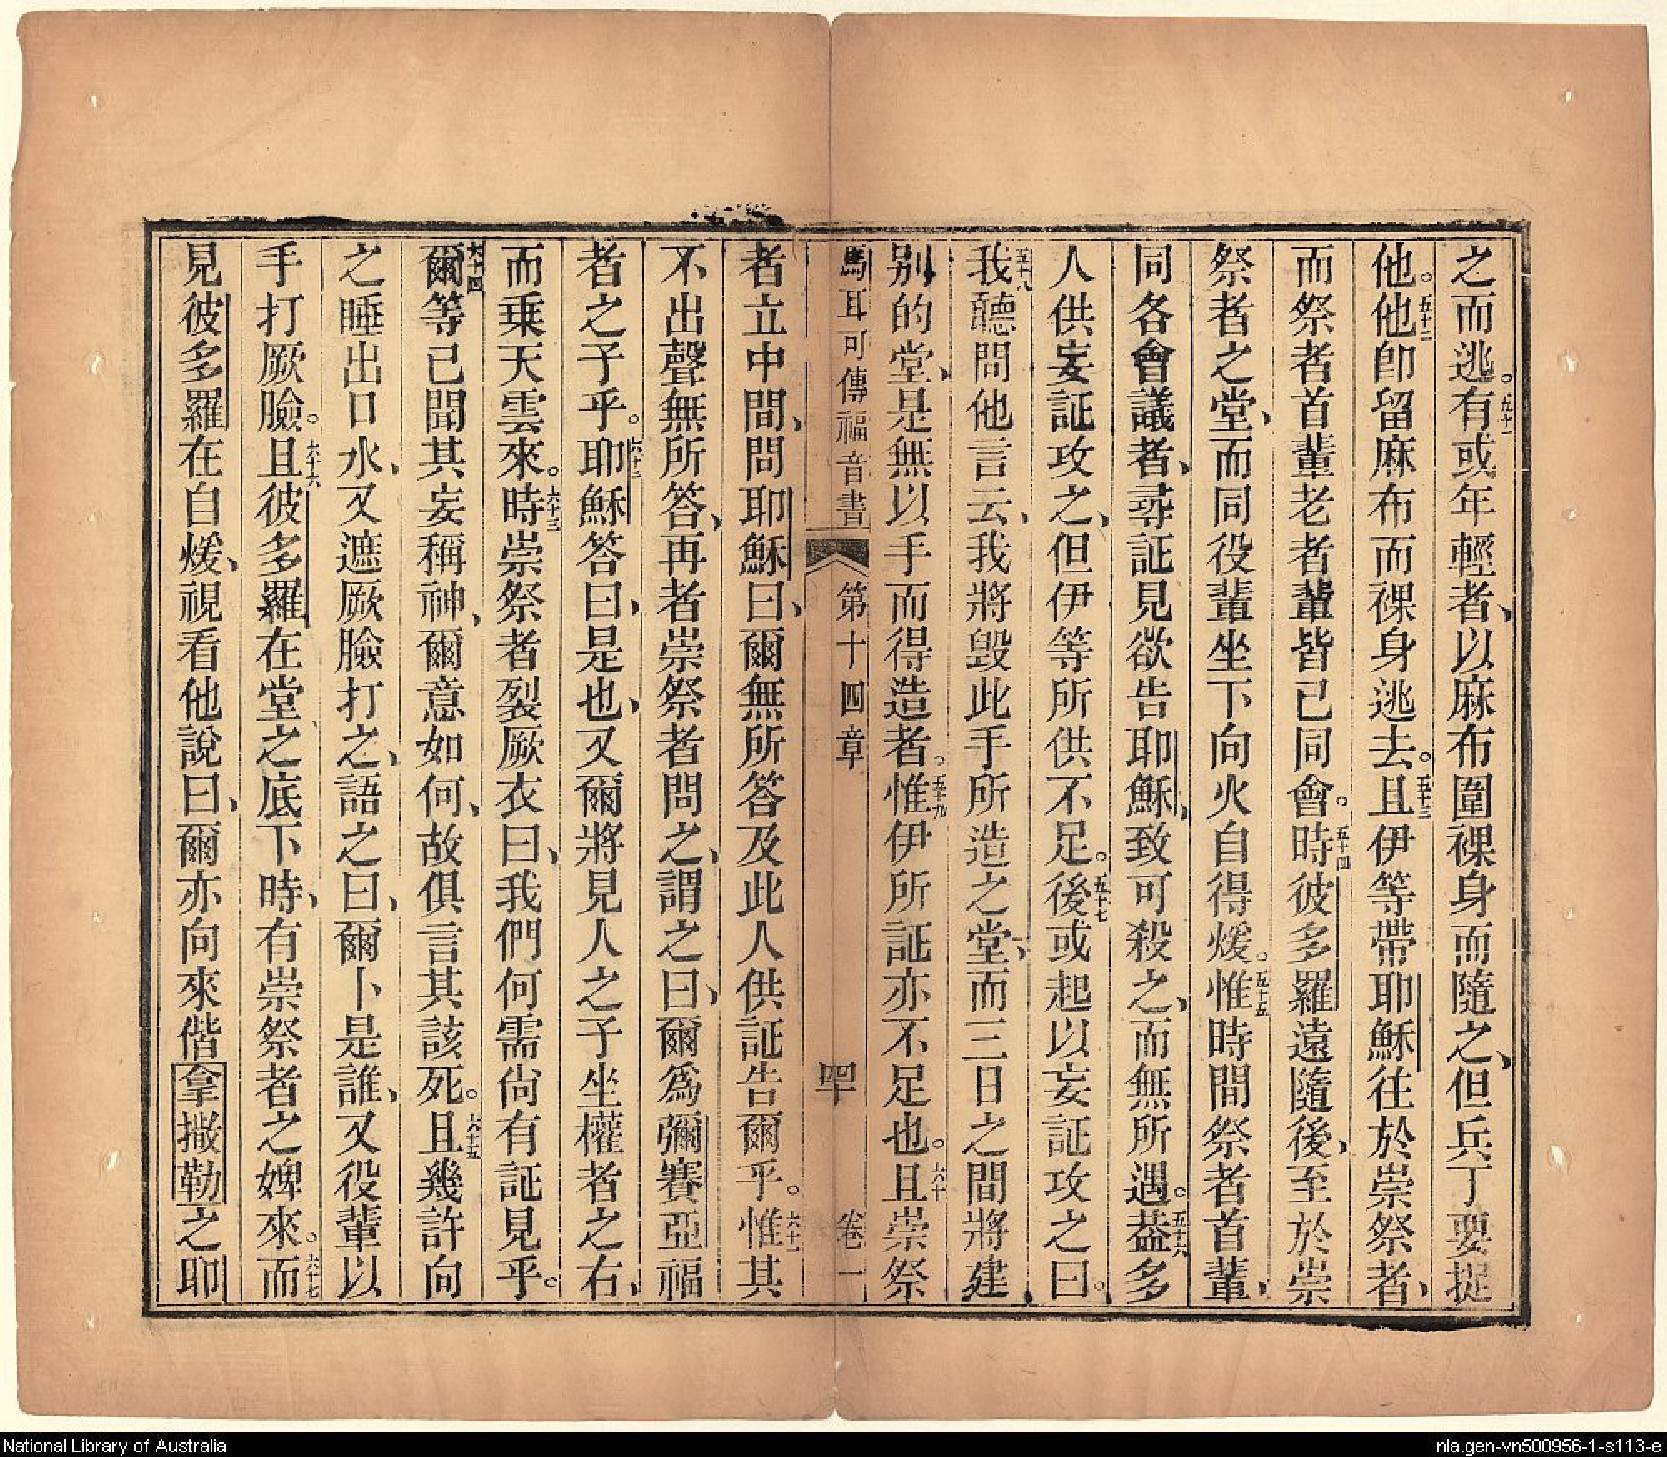 之而逃。五十一有或年輕者、以麻布圍裸身而隨之、但兵丁要捉
他。五十二他卽留麻布而裸身逃去。五十三且伊等帶耶穌往於崇祭者、
而祭者首輩老者輩皆已同會。五十四時彼多羅遠隨後、至於崇
祭者之堂、而同役輩坐下向火自得煖。五十五惟時間祭者首輩、
同各會議者、尋証見欲告耶穌、致可殺之、而無所遇。五十六葢多
人供妄証攻之、但伊等所供不足。五十七後或起以妄証攻之曰。
五十八我聽問他言云、我將毀此手所造之堂、而三日之間將建
别的堂、是無以手而得造者。五十九惟伊所証亦不足也。六十且崇祭
馬耳可傳福音書 第十四章 四十 卷一
者立中間、問耶穌曰、爾無所答及此人供証告爾乎。六十一惟其
不出聲無所答、再者崇祭者問之、謂之曰、爾爲彌賽亞福
者之子乎。六十二耶穌答曰、是也、又爾將見人之子坐權者之右、
而乘天雲來。六十三時崇祭者裂厥衣曰、我們何需尙有証見乎。
六十四爾等已聞其妄稱神、爾意如何、故俱言其該死。六十五且幾許向
之唾出口水、又遮厥臉打之、語之曰、爾卜是誰、又役輩以
手打厥臉。六十六且彼多羅在堂之底下時、有崇祭者之婢來。六十七而
見彼多羅在自煖、視看他說曰、爾亦向來偕拿撒勒之耶
National Library of Australia
nla.gen-vn500956-1-s113-e